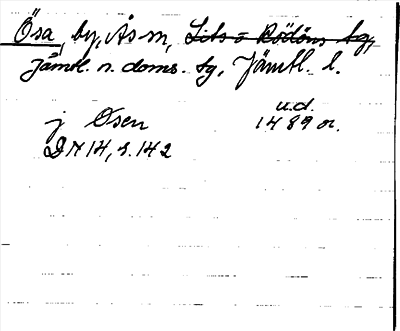 Ösa, by, Ås sn, Lits o Rödöns tg,
Jämtl. n. doms. tg, Jämtl. l.
u.d.
j Øsen 1489 or.
DN 14, s. 142